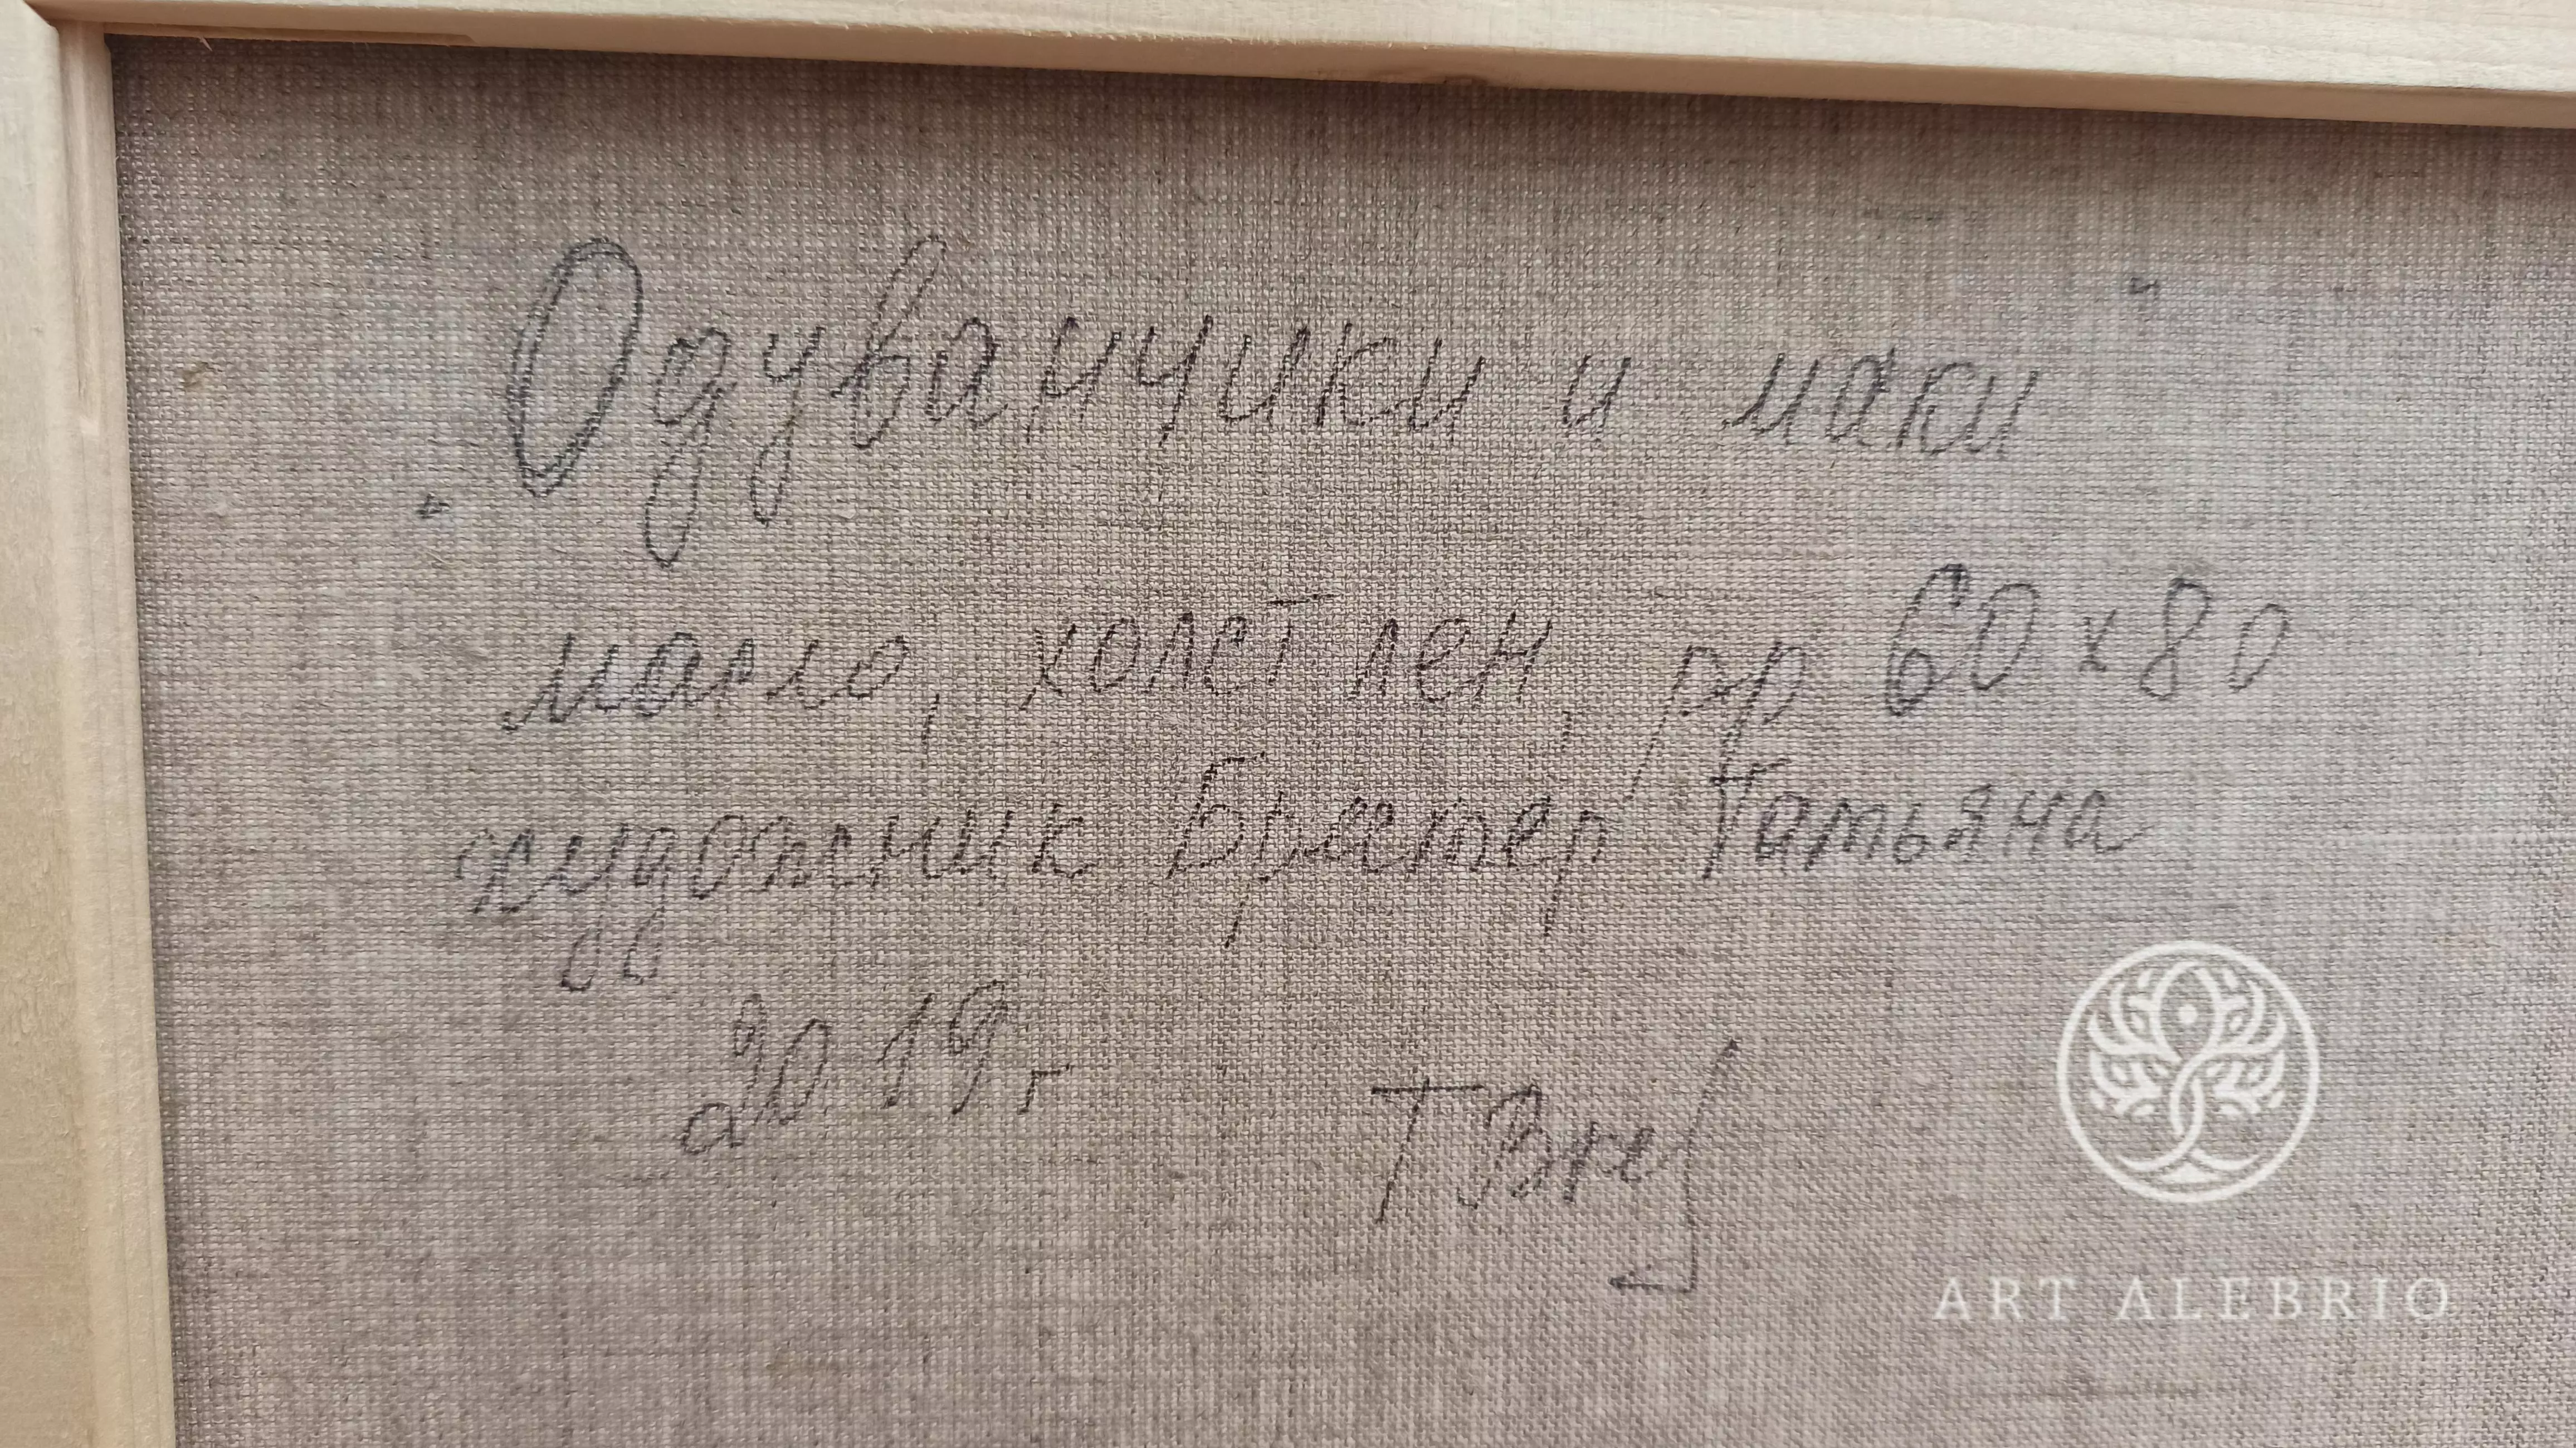 "Одуванчики и маки"
масло, холст лен, рр 60 х 80
художник Братер Татьяна
2019 г T Bre
ART ALEBRIO